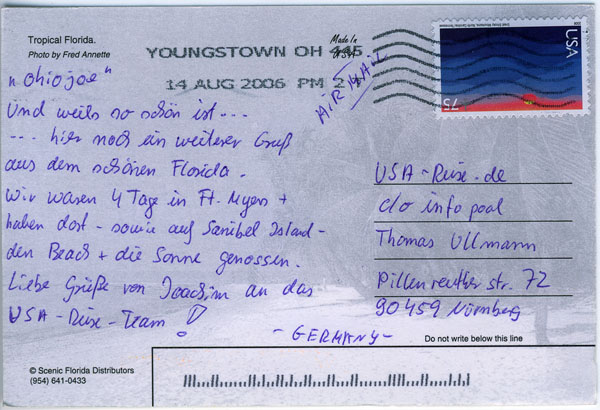 Tropical Florida.
Photo by Fred Annette
Made In
USA
YOUNGSTOWN OH 445
14 AUG 2006 PM 2
AIR MAIL
USA
75
"ohiojoe"
Und weils so schön ist ---
--- hier noch ein weiterer Gruß
aus dem schönen Florida.
Wir waren 4 Tage in Ft. Myers +
haben dort - sowie auf Sanibel Island -
den Beach + die Sonne genossen.
Liebe Grüße von Joachim an das
USA-Reise-Team!
USA-Reise.de
c/o info pool
Thomas Ullmann
Pillenreuther Str. 72
90459 Nürnberg
- GERMANY -
Do not write below this line
© Scenic Florida Distributors
(954) 641-0433